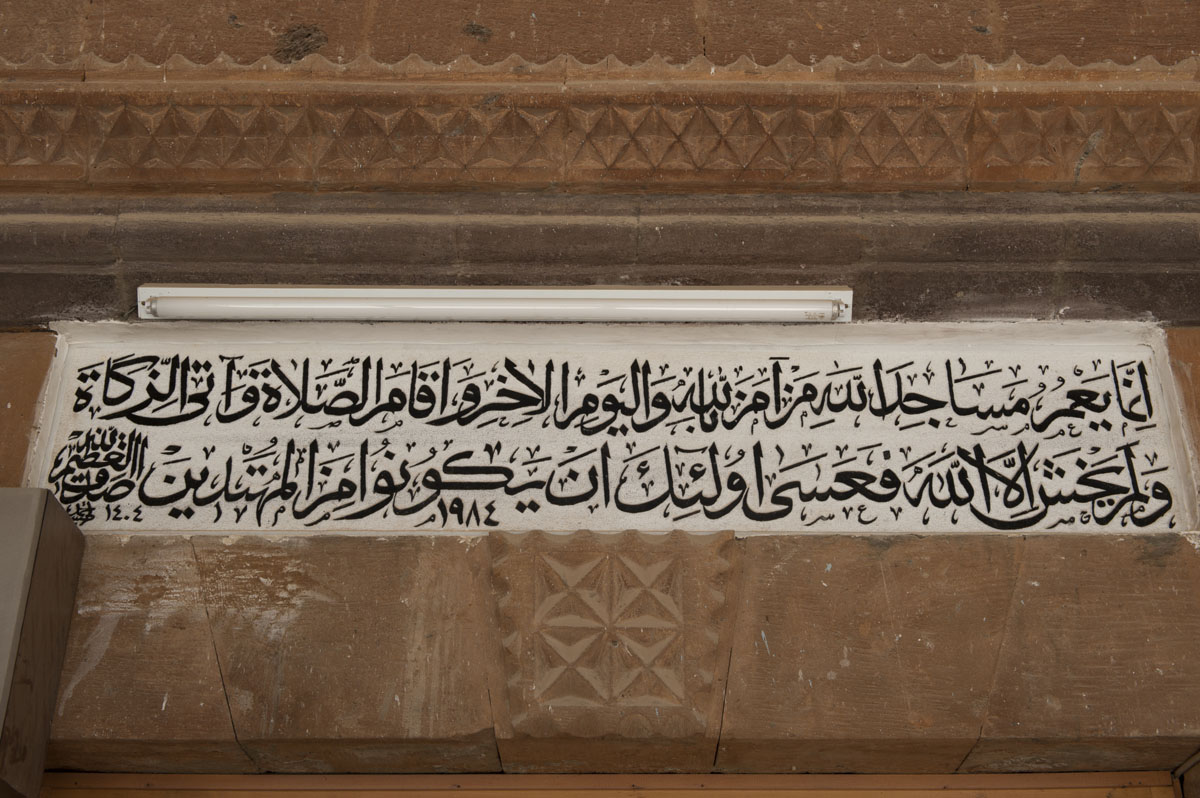 انما يعمر مساجد الله من آمن بالله واليوم الاخر واقام الصلاة وآتى الزكاة
ولم يخش الا الله فعسى اولئك ان يكونوا من المهتدين صدق الله العظيم
١٩٨٤ ١٤٠٤